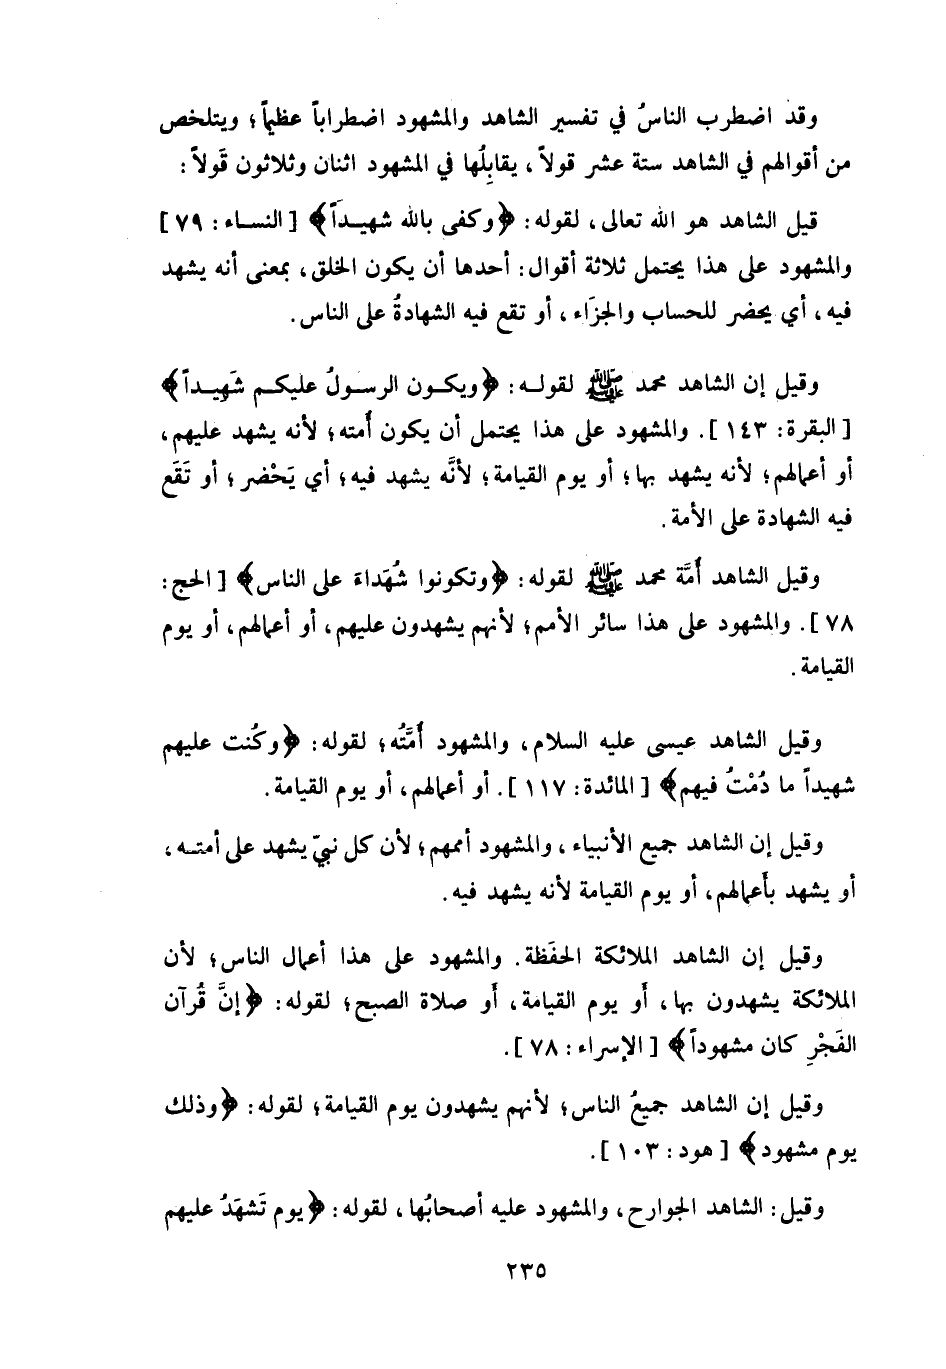 وقد اضطرب الناسُ في تفسير الشاهد والمشهود اضطراباً عظيماً؛ ويتلخص
من أقوالهم في الشاهد ستة عشر قولاً، يقابِلُها في المشهود اثنان وثلاثون قَولاً:
قيل الشاهد هو الله تعالى، لقوله: ﴿وكفى بالله شهيداً﴾ [النساء: ٧٩]
والمشهود على هذا يحتمل ثلاثة أقوال: أحدها أن يكون الخلق، بمعنى أنه يشهد
فيه، أي يحضر للحساب والجزَاء، أو تقع فيه الشهادةُ على الناس.
وقيل إن الشاهد محمد ﷺ لقوله: ﴿ويكون الرسولُ عليكم شَهِيداً﴾
[البقرة: ١٤٣]. والمشهود على هذا يحتمل أن يكون أُمته؛ لأنه يشهد عليهم،
أو أعمالهم؛ لأنه يشهد بها؛ أو يوم القيامة؛ لأنَّه يشهد فيه؛ أي يَحْضر؛ أو تَقَع
فيه الشهادة على الأمة.
وقيل الشاهد أُمَّة محمد ﷺ لقوله: ﴿وتكونوا شُهَداءَ على الناس﴾ [الحج:
٧٨]. والمشهود على هذا سائر الأمم؛ لأنهم يشهدون عليهم، أو أعمالهم، أو يوم
القيامة.
وقيل الشاهد عيسى عليه السلام، والمشهود أُمَّتُه؛ لقوله: ﴿وكُنت عليهم
شهيداً ما دُمْتُ فيهم﴾ [المائدة: ١١٧]. أو أعمالهم، أو يوم القيامة.
وقيل إن الشاهد جميع الأنبياء، والمشهود أممهم؛ لأن كل نبيّ يشهد على أمته،
أو يشهد بأَعمالهم، أو يوم القيامة لأنه يشهد فيه.
وقيل إن الشاهد الملائكة الحفَظة. والمشهود على هذا أعمال الناس؛ لأن
الملائكة يشهدون بها، أَو يوم القيامة، أَو صلاة الصبح؛ لقوله: ﴿إنَّ قُرآن
الفَجْرِ كان مشهوداً﴾ [الإسراء: ٧٨].
وقيل إن الشاهد جميعُ الناس؛ لأنهم يشهدون يوم القيامة؛ لقوله: ﴿وذلك
يوم مشهود﴾ [هود: ١٠٣].
وقيل: الشاهد الجوارح، والمشهود عليه أصحابُها، لقوله: ﴿يوم تَشهَدُ عليهم
٢٣٥